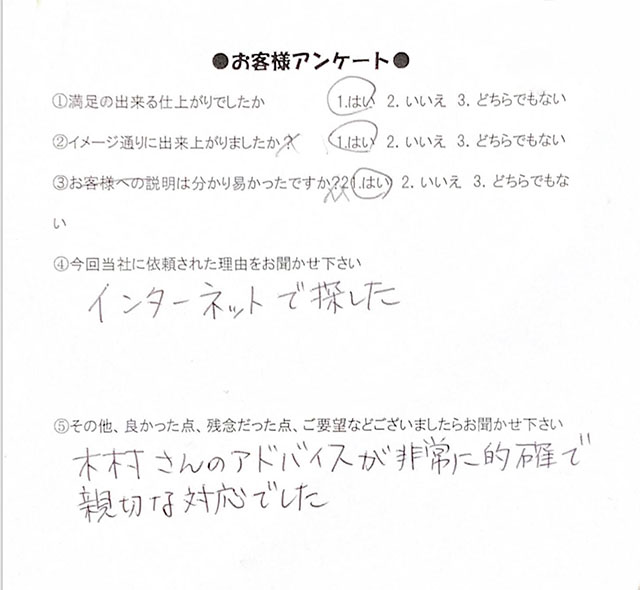 ●お客様アンケート●
①満足の出来る仕上がりでしたか 1.はい 2.いいえ 3.どちらでもない
②イメージ通りに出来上がりましたか? 1.はい 2.いいえ 3.どちらでもない
③お客様への説明は分かり易かったですか?21.はい 2.いいえ 3.どちらでもな
い
④今回当社に依頼された理由をお聞かせ下さい
インターネットで探した
⑤その他、良かった点、残念だった点、ご要望などございましたらお聞かせ下さい
木村さんのアドバイスが非常に的確で
親切な対応でした